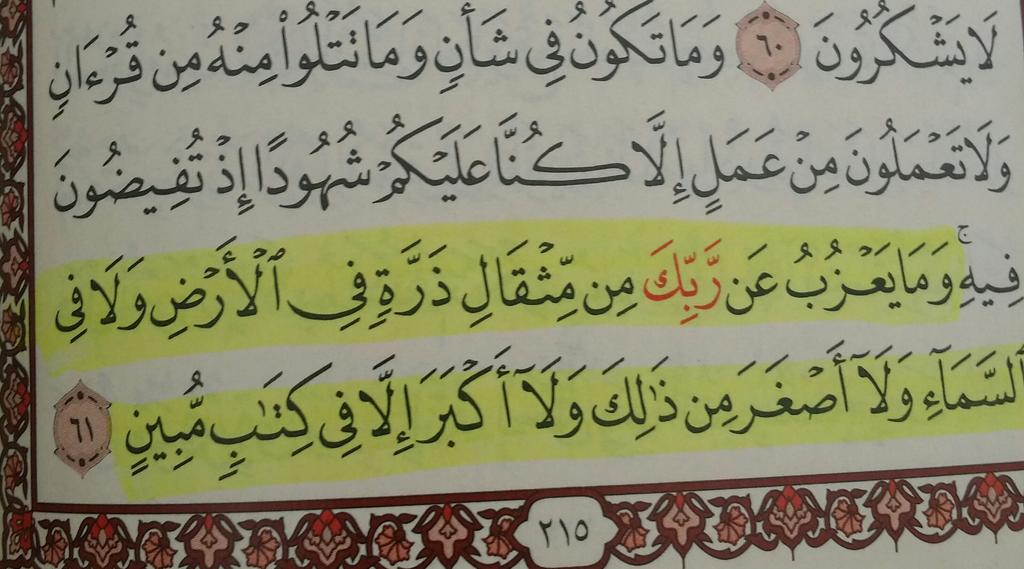 لَا يَشْكُرُونَ ٦٠ وَمَا تَكُونُ فِي شَأْنٍ وَمَا تَتْلُوا۟ مِنْهُ مِن قُرْءَانٍ
وَلَا تَعْمَلُونَ مِنْ عَمَلٍ إِلَّا كُنَّا عَلَيْكُمْ شُهُودًا إِذْ تُفِيضُونَ
فِيهِ ۚ وَمَا يَعْزُبُ عَن رَّبِّكَ مِن مِّثْقَالِ ذَرَّةٍ فِي ٱلْأَرْضِ وَلَا فِي
ٱلسَّمَآءِ وَلَآ أَصْغَرَ مِن ذَٰلِكَ وَلَآ أَكْبَرَ إِلَّا فِي كِتَٰبٍ مُّبِينٍ ٦١
٢١٥